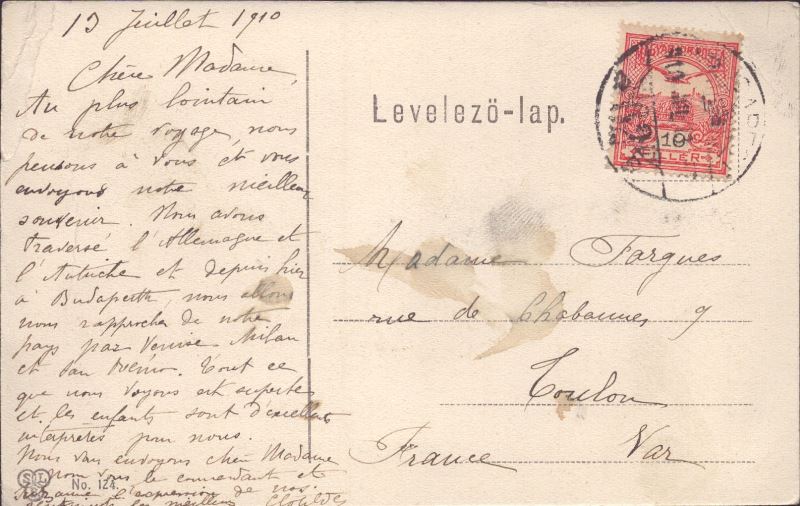 13 Juillet 1910
Chère Madame,
Au plus lointain
de notre voyage, nous
pensons à vous et vous
envoyons notre meilleur
souvenir. Nous avons
traversé l'Allemagne et
l'Autriche et depuis hier
à Budapesth, nous allons
nous rapprocher de notre
pays par Venise Milan
et San Remo. Tout ce
que nous voyons est superbe
et les enfants sont d'excellents
interprètes pour nous.
Nous vous envoyons chère Madame
le commandant et
Suzanne l'expression de nos
les meilleurs Clotilde
Levelező-lap.
10
FILLER
Madame Fargues
rue de Chabannes 9
Toulon
France Var
SL
No. 124.